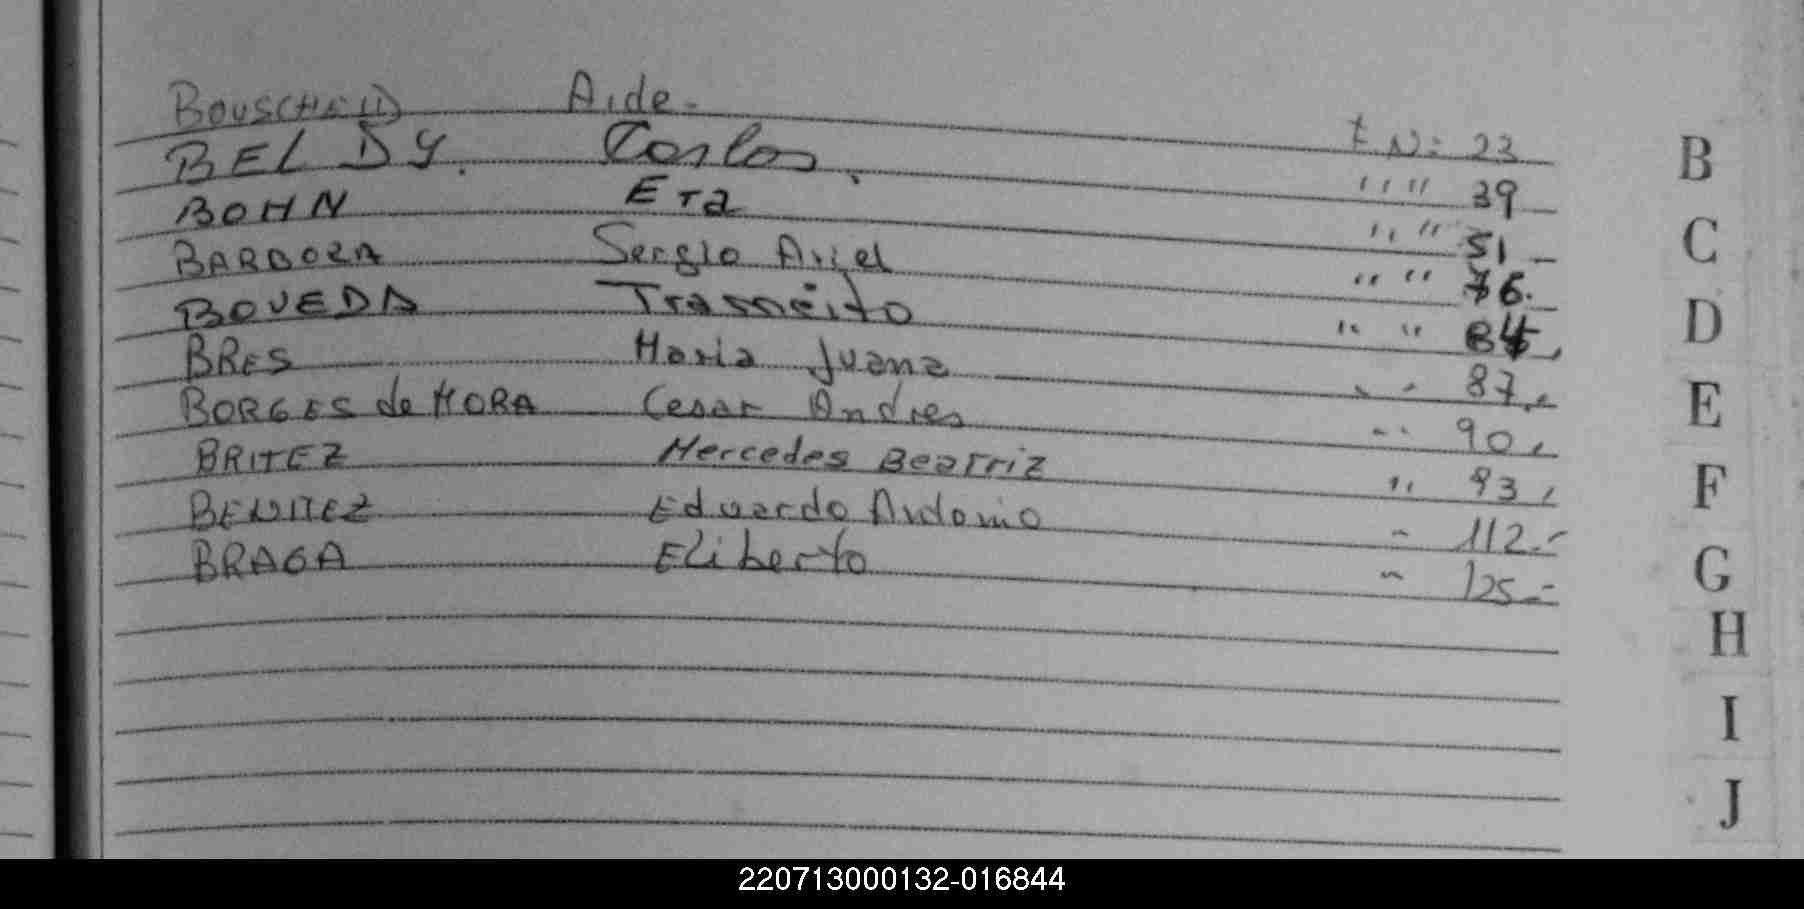 BOUSCHEID Aide.
BELDY. Carlos.
BOHN Era
BARBOZA Sergio Ariel
BOVEDA Transito
BRES Maria Juana
BORGES de MORA Cesar Andres
BRITEZ Mercedes Beatriz
BENITEZ Eduardo Antonio
BRAGA Eliberto
N: 23
" " 39
" " 51
" " 76.
" " 84,
" 87.
" 90,
" 93,
" 112.-
" 125.-
B
C
D
E
F
G
H
I
J
220713000132-016844